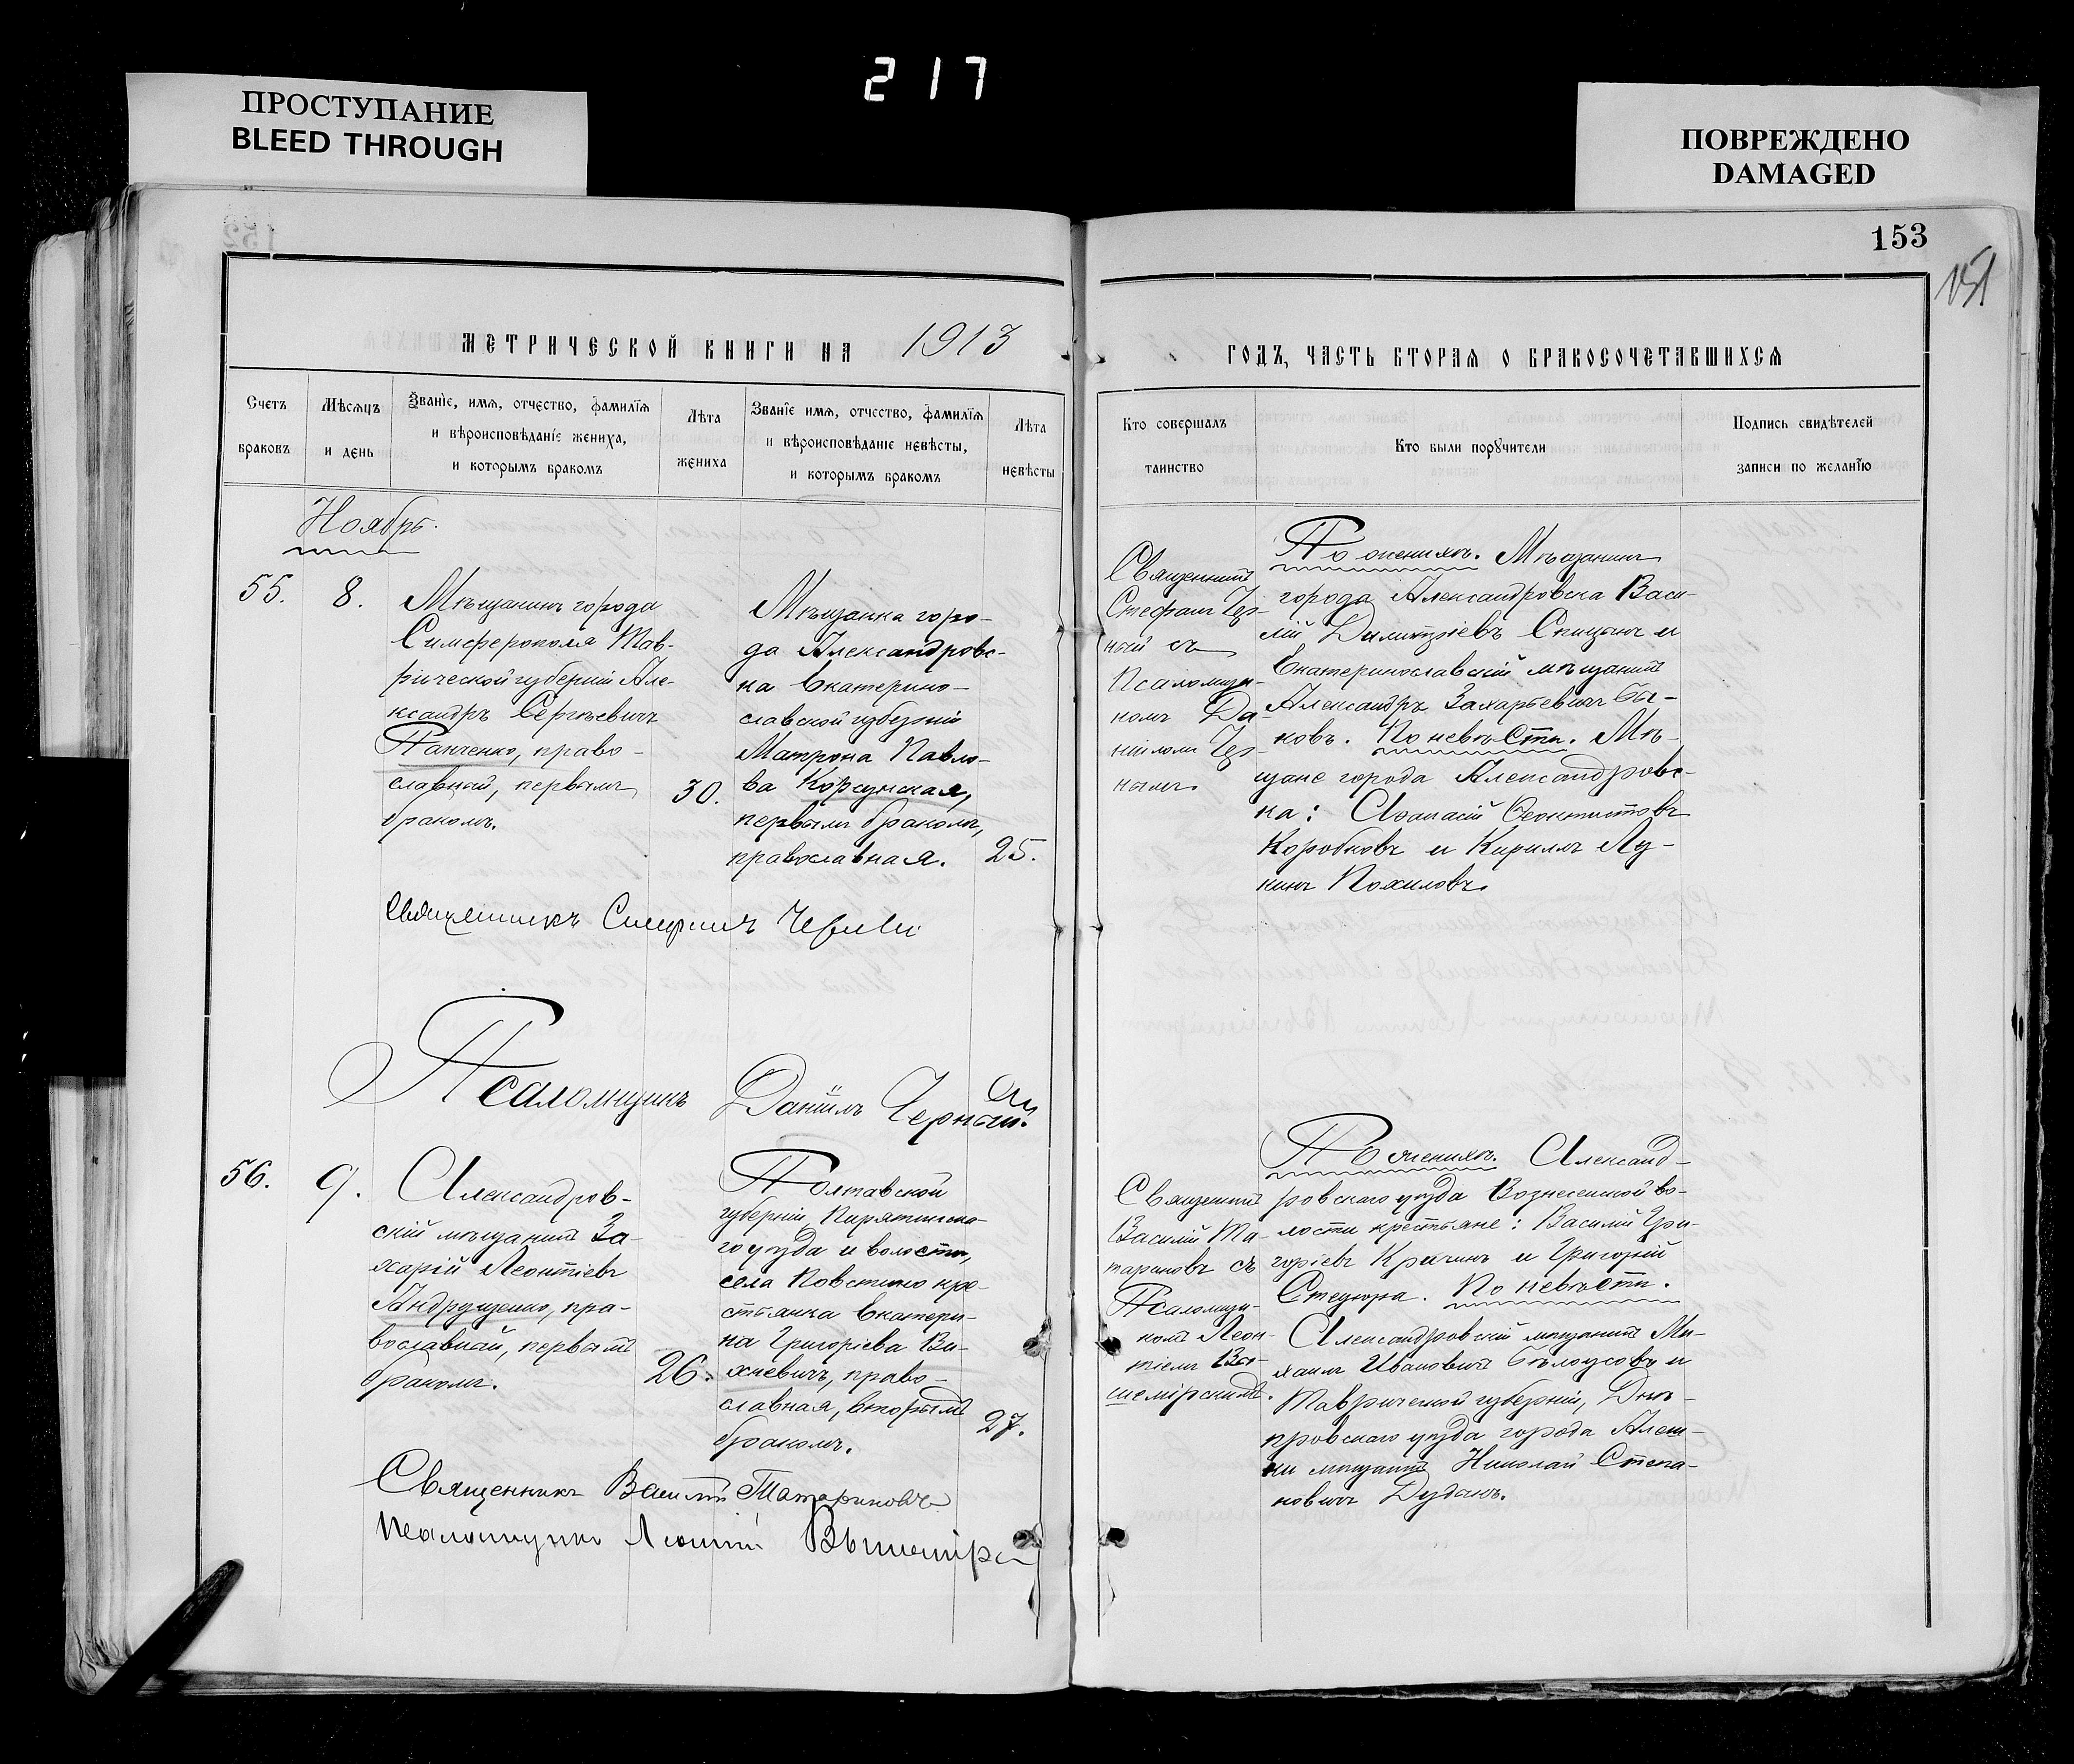 217
ПРОСТУПАНИЕ
BLEED THROUGH
ПОВРЕЖДЕНО
DAMAGED
153
151
МЕТРИЧЕСКОЙ КНИГИ НА 1913
ГОДЪ, ЧАСТЬ ВТОРАЯ О БРАКОСОЧЕТАВШИХСЯ
Счетъ
браковъ
Мѣсяцъ
и день
Званіе, имя, отчество, фамилія
и вѣроисповѣданіе жениха,
и которымъ бракомъ
Лѣта
жениха
Званіе имя, отчество, фамилія
и вѣроисповѣданіе невѣсты,
и которымъ бракомъ
Лѣта
невѣсты
Кто совершалъ
таинство
Кто были поручители
Подпись свидѣтелей
записи по желанію
Ноябрь.
55.
8.
Мѣщанинъ города
Симферополя Тав-
рической губерніи Але-
ксандръ Сергѣевичъ
Панченко, право-
славный, первымъ
бракомъ.
30.
Мѣщанка горо-
да Александровс-
ка Екатерино-
славской губерніи
Матрона Павло-
ва Корсунская,
первымъ бракомъ,
православная.
25.
Священникъ
Стефанъ Чер-
ный съ
Псаломщи-
комъ Да-
ніиломъ Чер-
нымъ.
По женихѣ. Мѣщанинъ
города Александровска Васи-
лій Димитріевъ Спицынъ и
Екатеринославскій мѣщанинъ
Александръ Захарьевичъ Бы-
ковъ. По невѣстѣ. Мѣ-
щане города Александровс-
ка: Аѳанасій Ѳеоктистовъ
Коробковъ и Кириллъ Лу-
кинъ Похиловъ.
Священникъ Стефанъ Черный
Псаломщикъ Даніилъ Черный.
56.
9.
Александров-
скій мѣщанинъ За-
харій Леонтіевъ
Андрущенко, пра-
вославный, первымъ
бракомъ.
26.
Полтавской
губерніи Пирятинска-
го уѣзда и волости,
села Повстино кре-
стьянка Екатери-
на Григоріева Ви-
хневичъ, право-
славная, вторымъ
бракомъ.
27.
Священникъ
Василій Та-
тариновъ съ
Псаломщи-
комъ Леон-
тіемъ Вы-
шемірскимъ.
По женихѣ. Александ-
ровскаго уѣзда Вознесенской во-
лости крестьяне: Василій Гри-
горіевъ Кричинъ и Григорій
Стецюра. По невѣстѣ.
Александровскій мѣщанинъ Ми-
хаилъ Ивановичъ Бѣлоусовъ и
Таврической губерніи, Днѣ-
провскаго уѣзда города Алеш-
ки мѣщанинъ Николай Степа-
новичъ Дудакъ.
Священникъ Василій Татариновъ
Псаломщикъ Леонтій